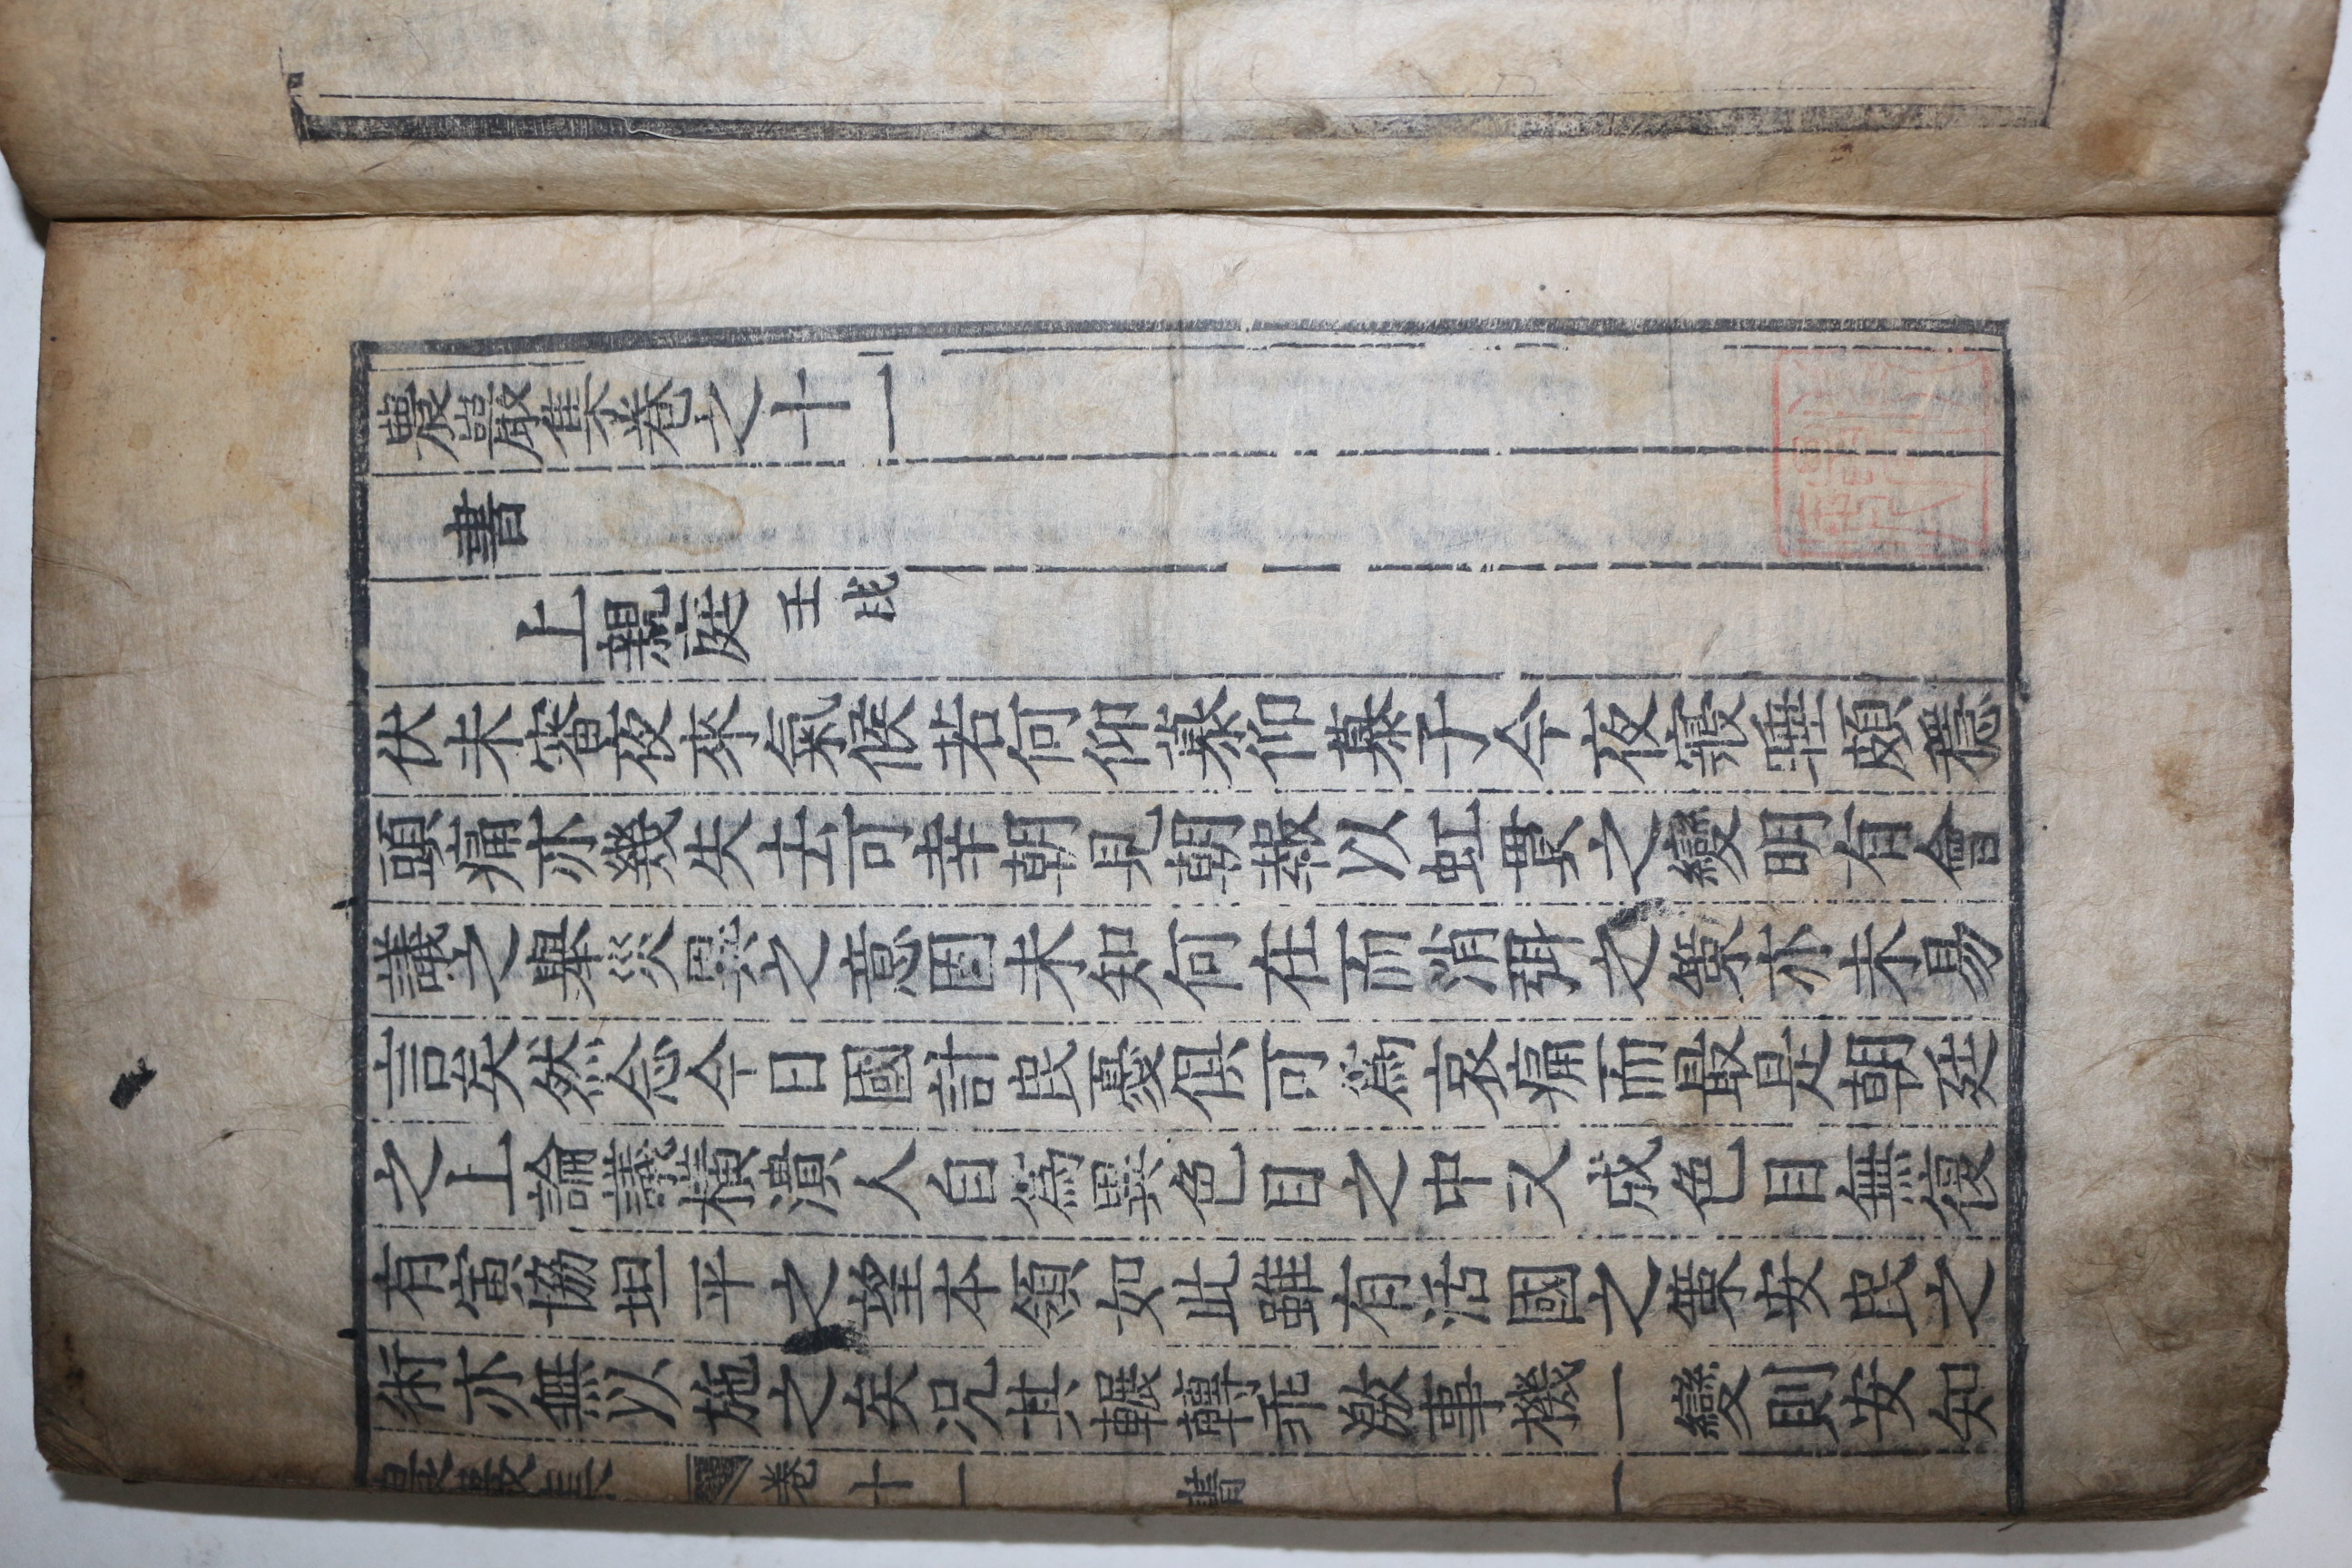 農巖集卷之十一
書
上親庭 壬戌
伏未審夜來氣候若何仰慕仰慕子今夜寢睡頗穩
頭痛亦幾失去可幸朝見朝報以虹貫之變明有會
議之舉災異之意固未知何在而消弭之策亦未易
言矣然念今日國計民憂俱可爲哀痛而最是朝廷
之上論議橫潰人自爲異色目之中又成色目無復
有寅協坦平之望本領如此雖有活國之策安民之
術亦無以施之矣况其輾轉乖激事機一變則安知
農巖集 卷十一 書 一